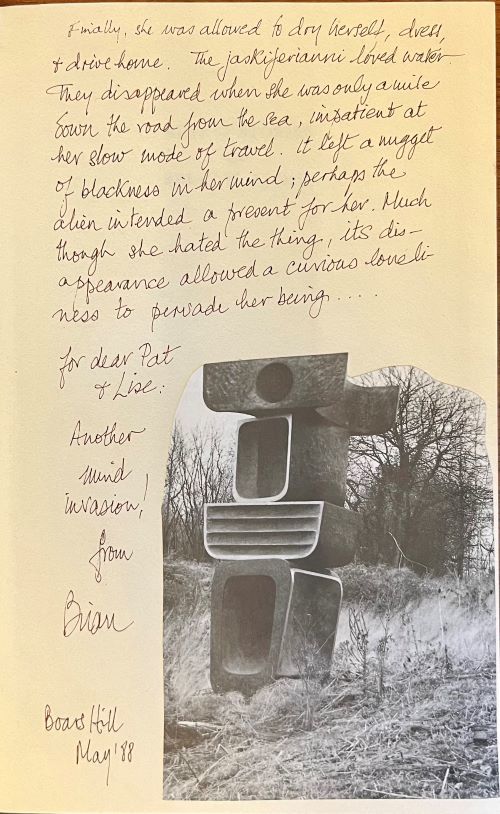 Finally, she was allowed to dry herself, dress,
& drive home. The jaskiferianni loved water.
They disappeared when she was only a mile
down the road from the sea, impatient at
her slow mode of travel. It left a nugget
of blackness in her mind; perhaps the
alien intended a present for her. Much
though she hated the thing, its dis-
appearance allowed a curious loneli-
ness to pervade her being.....
for dear Pat
& Lise:
Another
mind
invasion!
from
Brian
Boars Hill
May '88